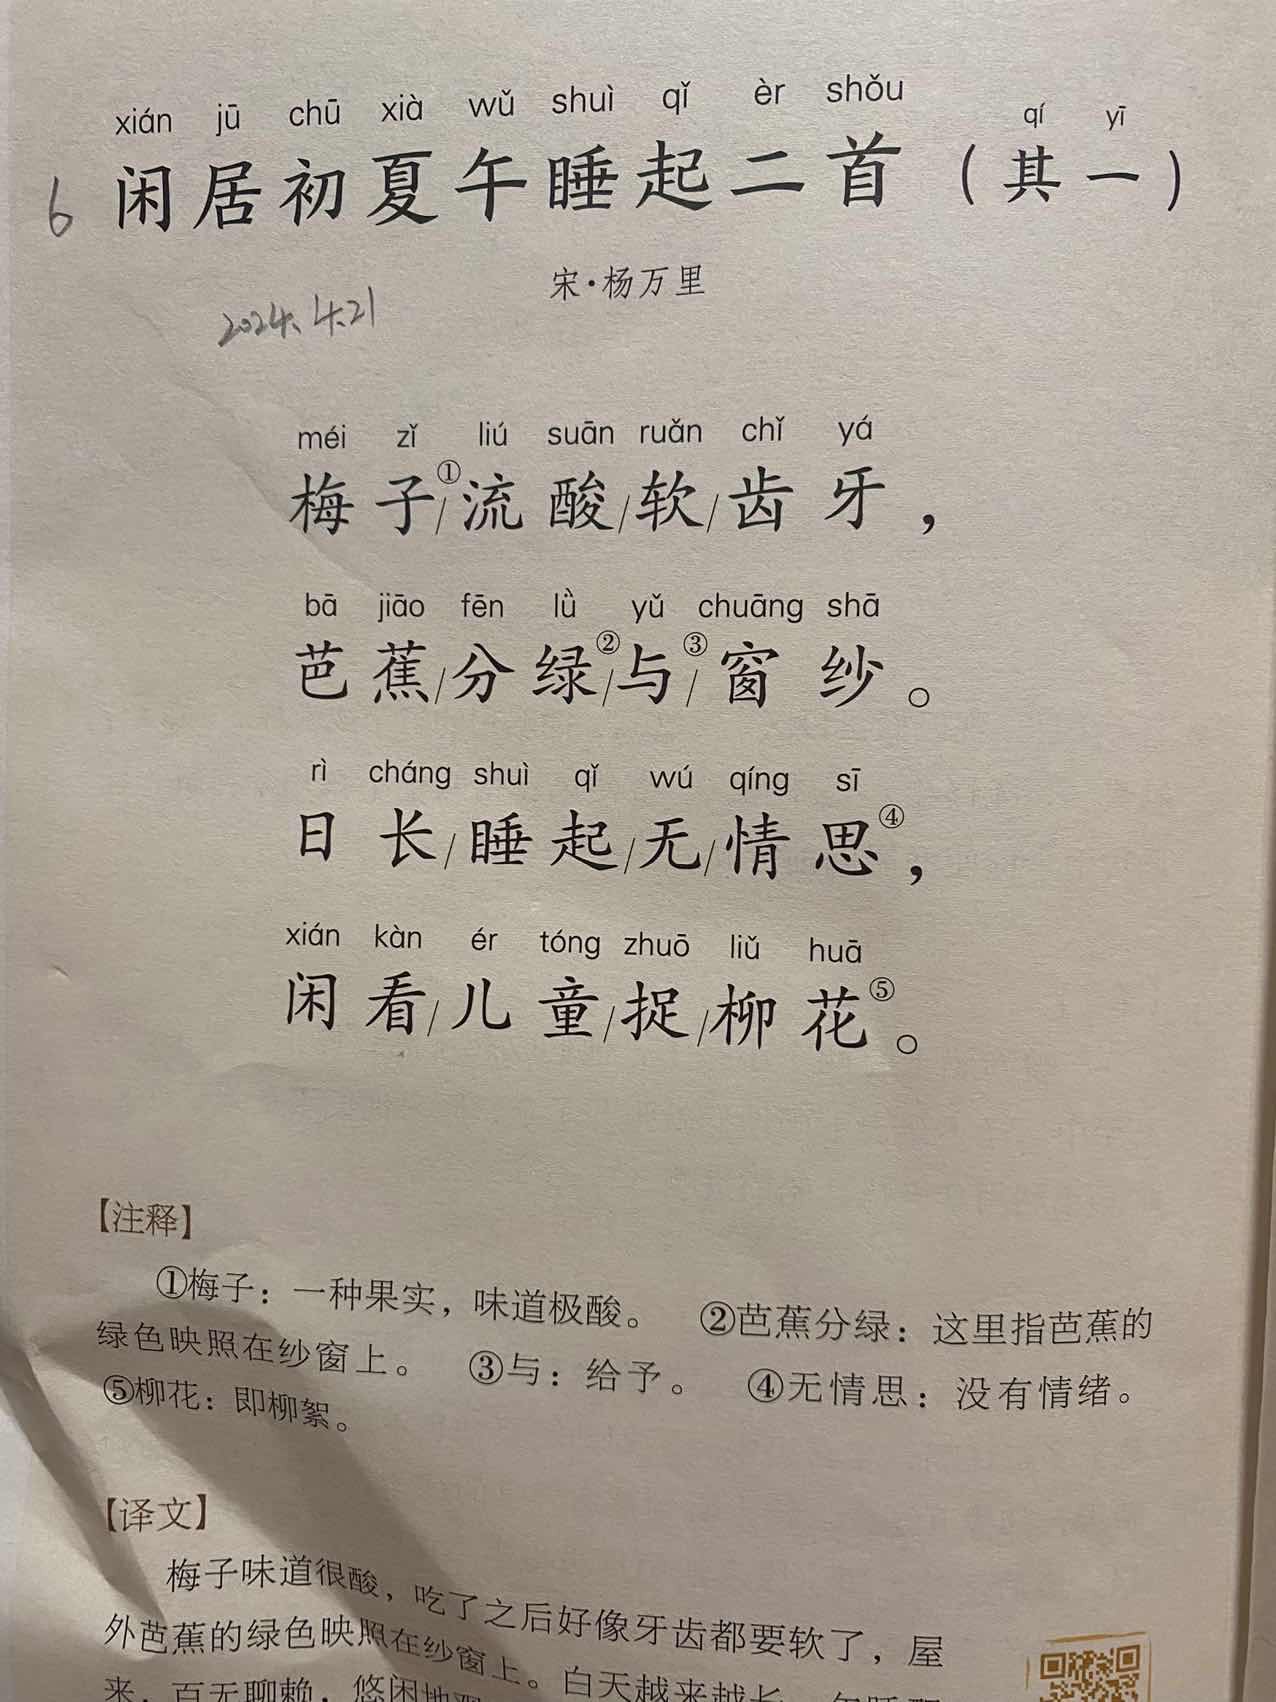 xián jū chū xià wǔ shuì qǐ èr shǒu qí yī
6 闲居初夏午睡起二首（其一）
宋·杨万里
2024.4.21
méi zǐ liú suān ruǎn chǐ yá
梅子①/流酸/软/齿牙，
bā jiāo fēn lǜ yǔ chuāng shā
芭蕉/分绿②/与③/窗纱。
rì cháng shuì qǐ wú qíng sī
日长/睡起/无/情思④，
xián kàn ér tóng zhuō liǔ huā
闲看/儿童/捉/柳花⑤。
【注释】
①梅子：一种果实，味道极酸。 ②芭蕉分绿：这里指芭蕉的
绿色映照在纱窗上。 ③与：给予。 ④无情思：没有情绪。
⑤柳花：即柳絮。
【译文】
梅子味道很酸，吃了之后好像牙齿都要软了，屋
外芭蕉的绿色映照在纱窗上。白天越来越长，午睡醒
来，百无聊赖，悠闲地